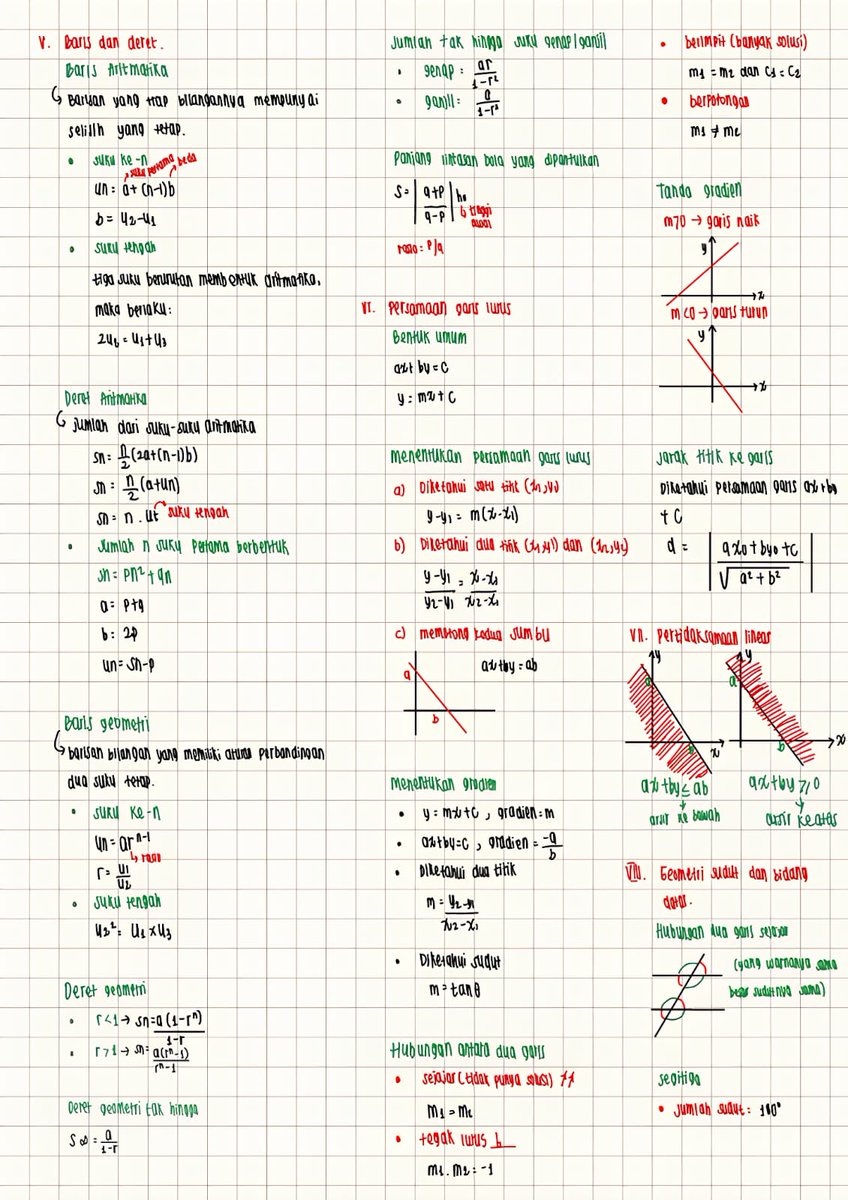 V. Baris dan deret.
Baris Aritmatika
Barisan yang tiap bilangannya mempunyai
selisih yang tetap.
• suku ke-n
suku pertama beda
un = a + (n-1)b
b = u2 - u1
• suku tengah
tiga suku berurutan membentuk aritmatika,
maka berlaku:
2ut = u1 + u3
Deret Aritmatika
jumlah dari suku-suku aritmatika
sn = n/2 (2a+(n-1)b)
sn = n/2 (a+un)
sn = n . ut → suku tengah
• Jumlah n suku pertama berbentuk
sn = pn² + qn
a = p+q
b = 2p
un = sn-p
Baris geometri
barisan bilangan yang memiliki aturan perbandingan
dua suku tetap.
• suku ke-n
un = ar^n-1
↳ rasio
r = u1/u2
• suku tengah
u2² = u1 x u3
Deret geometri
• r<1 → sn = a(1-r^n)/1-r
• r>1 → sn = a(r^n-1)/r^n-1
Deret geometri tak hingga
S∞ = a/1-r
Jumlah tak hingga suku genap/ganjil
• genap : ar/1-r²
• ganjil : a/1-r²
Panjang lintasan bola yang dipantulkan
S = |q+p/q-p| h0
↳ tinggi awal
rasio = p/q
VI. Persamaan garis lurus
Bentuk umum
ax + by = c
y = mx + c
Menentukan persamaan garis lurus
a) Diketahui satu titik (x1,y1)
y-y1 = m(x-x1)
b) Diketahui dua titik (x1,y1) dan (x2,y2)
y-y1/y2-y1 = x-x1/x2-x1
c) memotong kedua sumbu
a
b
ax+by = ab
Menentukan gradien
• y = mx+c , gradien = m
• ax+by=c , gradien = -a/b
• Diketahui dua titik
m = y2-y1/x2-x1
• Diketahui sudut
m = tan θ
Hubungan antara dua garis
• sejajar (tidak punya solusi)
m1 = m2
• tegak lurus
m1 . m2 = -1
• berimpit (banyak solusi)
m1 = m2 dan c1 = c2
• berpotongan
m1 ≠ m2
Tanda gradien
m>0 → garis naik
y
x
m<0 → garis turun
y
x
Jarak titik ke garis
Diketahui persamaan garis ax+by
+ c
d = |ax0+by0+c/√a²+b²|
VII. Pertidaksamaan linear
y
a
x
y
a
b
x
ax+by ≤ ab
arsir ke bawah
ax+by ≥ 0
arsir ke atas
VIII. Geometri sudut dan bidang
datar.
Hubungan dua garis sejajar
(yang warnanya sama
besar sudutnya sama)
segitiga
• jumlah sudut : 180°